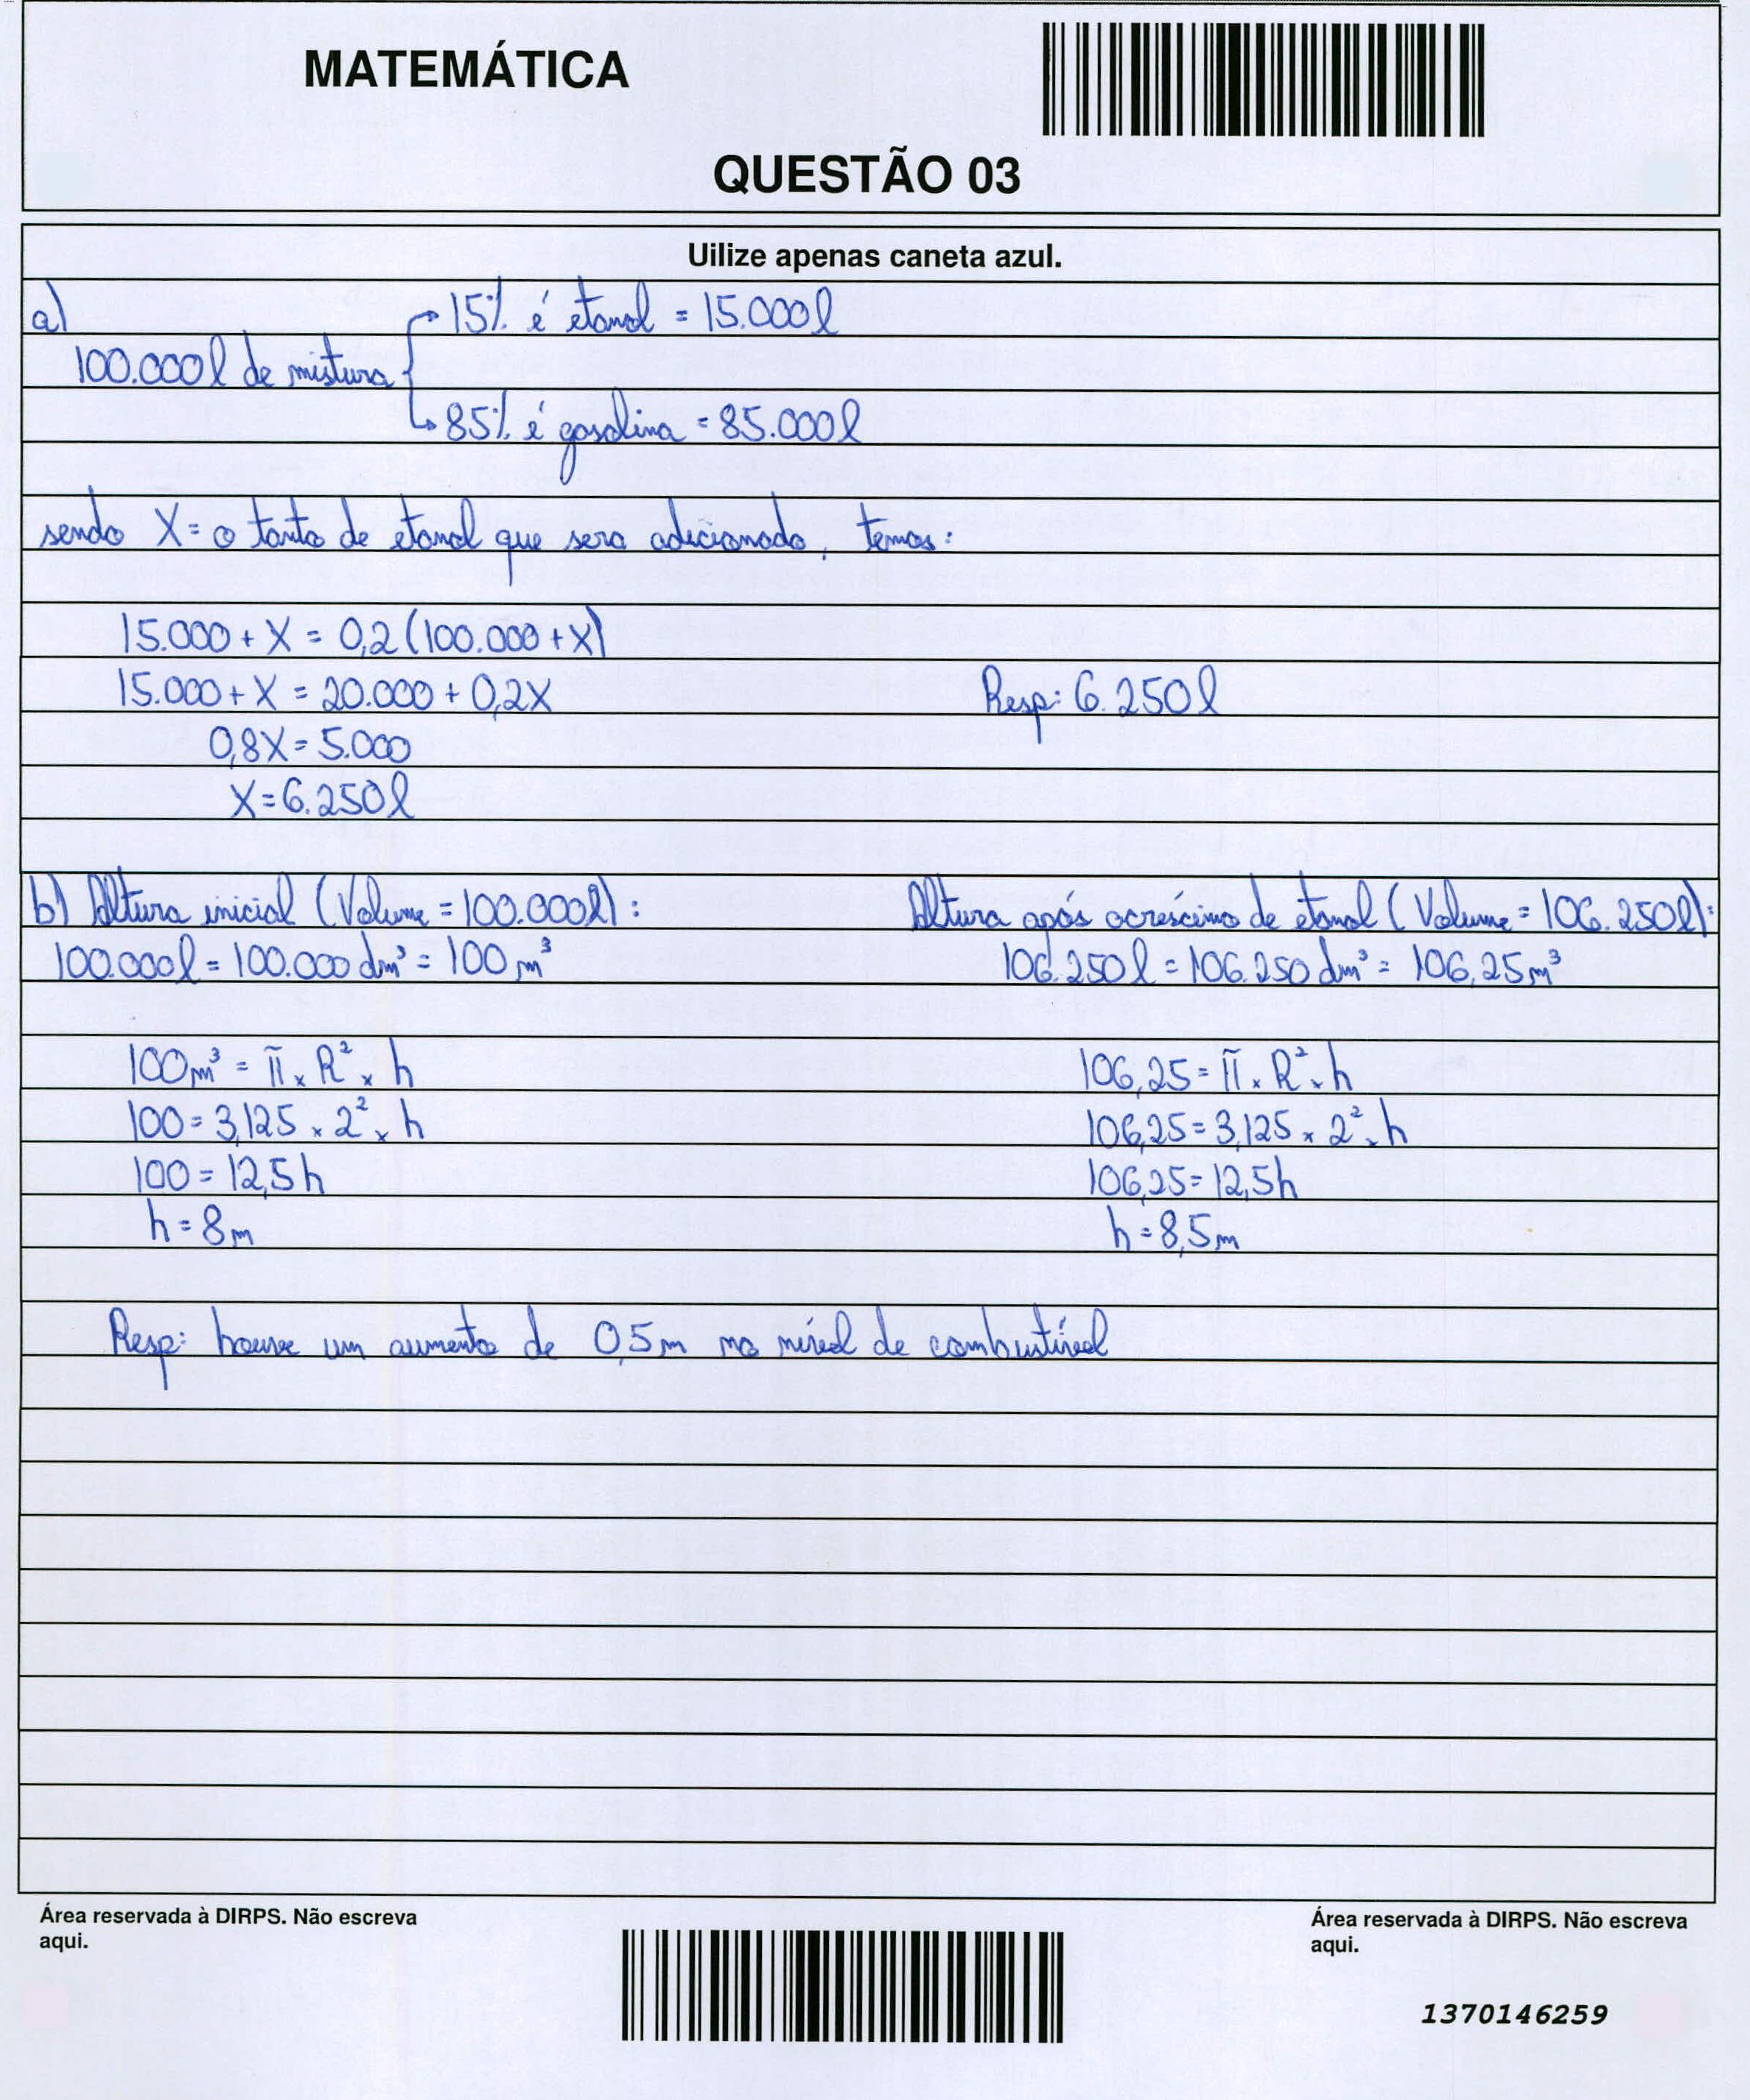 MATEMÁTICA
QUESTÃO 03
Uilize apenas caneta azul.
a)
15% é etanol = 15.000l
100.000l de mistura
85% é gasolina = 85.000l
sendo X = o tanto de etanol que sera adicionado, temos:
15.000 + X = 0,2 (100.000 + X)
15.000 + X = 20.000 + 0,2X
Resp: 6.250l
0,8X = 5.000
X = 6.250l
b) Altura inicial (Volume = 100.000l):
100.000l = 100.000 dm³ = 100 m³
100m³ = π x R² x h
100 = 3,125 x 2² x h
100 = 12,5h
h = 8m
Altura após acréscimo de etanol (Volume = 106.250l):
106.250l = 106.250 dm³ = 106,25m³
106,25 = π x R² x h
106,25 = 3,125 x 2² x h
106,25 = 12,5h
h = 8,5m
Resp: houve um aumento de 0,5m no nível de combustível
Área reservada à DIRPS. Não escreva
aqui.
Área reservada à DIRPS. Não escreva
aqui.
1370146259